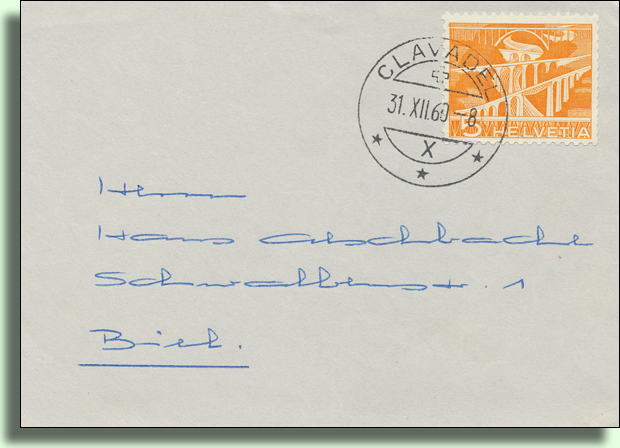 CLAVADEL
31.XII.60–8
X
5 HELVETIA
Herrn
Hans Aeschbacher
Schwalbenstr. 1
Biel.